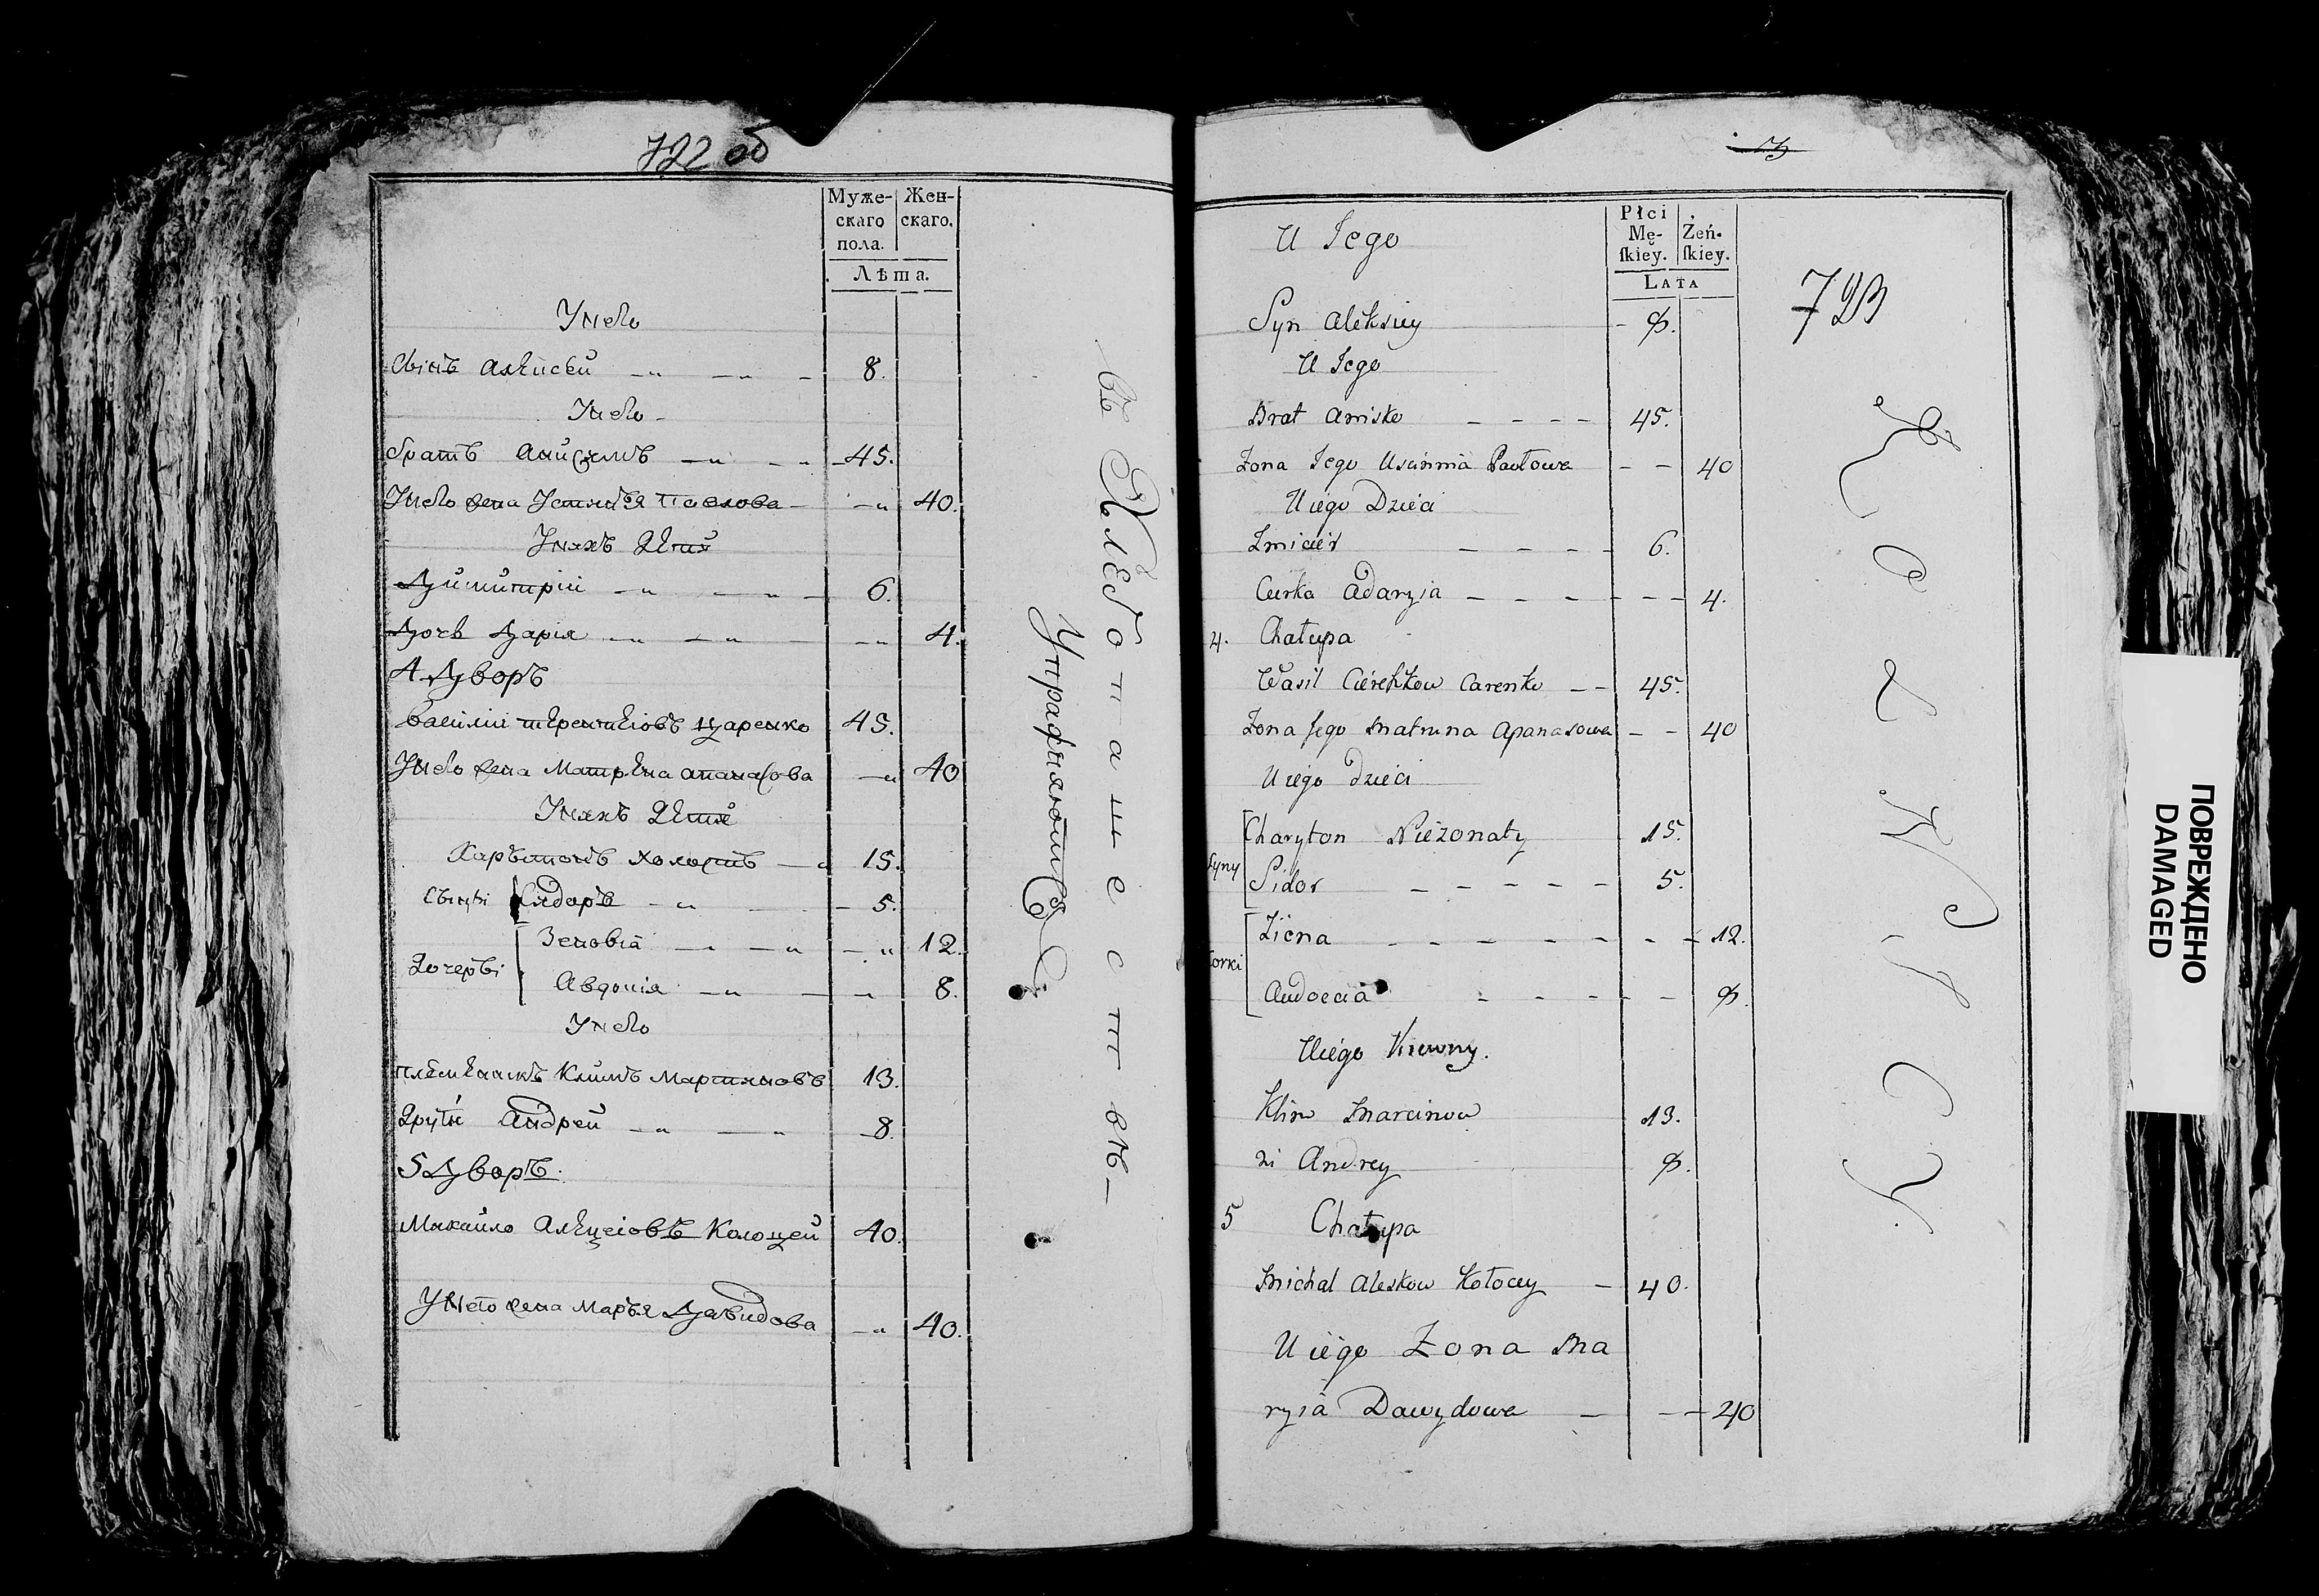 722 об
Муже-
скаго
пола.
Жен-
скаго.
Лѣта.
У него
Сынъ Алѣксѣй 8.
У него
братъ Анисимъ 45.
У него жена Устинья Павлова 40.
У нихъ Дѣти
Димитрій 6.
Дочь Дарія 4.
4 Дворъ
Василій терентіевъ царенко 45.
У него жена Матрѣна апанасова 40
У нихъ Дѣти
Харытонъ холостъ 15.
Сыны Сидоръ 5.
Дочери
Зеновія 12.
Авдотія 8.
У него
племѣнникъ Климъ Мартиновъ 13.
Другій Андрей 8.
5 Дворъ.
Михайло Алѣцсіовъ Колоцей 40.
У него жена Марья Давидова 40.
въ Хлѣбопашествѣ
Упражняютися
3
723
Płci
Mę-
ſkiey.
Żeń-
ſkiey.
Lata
U Jego
Syn Aleksiey 8.
U Jego
Brat Anisko 45.
Zona Jego Uscinnia Pawłowa 40
U iego Dzieci
Zmicier 6.
Curka Adaryia 4.
4. Chałupa
Wasil Ciereszkow Carenko 45.
Zona Jego Matruna Apanasowa 40
U iego dzieci
Syny
Charyton Nieżonaty 15.
Sidor 5.
Corki
Zicna 12.
Audoccia 8.
U iego Krewny.
Klim Marcinow 13.
ni Andrey 8.
5 Chałupa
Michal Aleskow Kołocey 40.
U iego Zona Ma
ryia Dawydowa 40
ПОВРЕЖДЕНО
DAMAGED